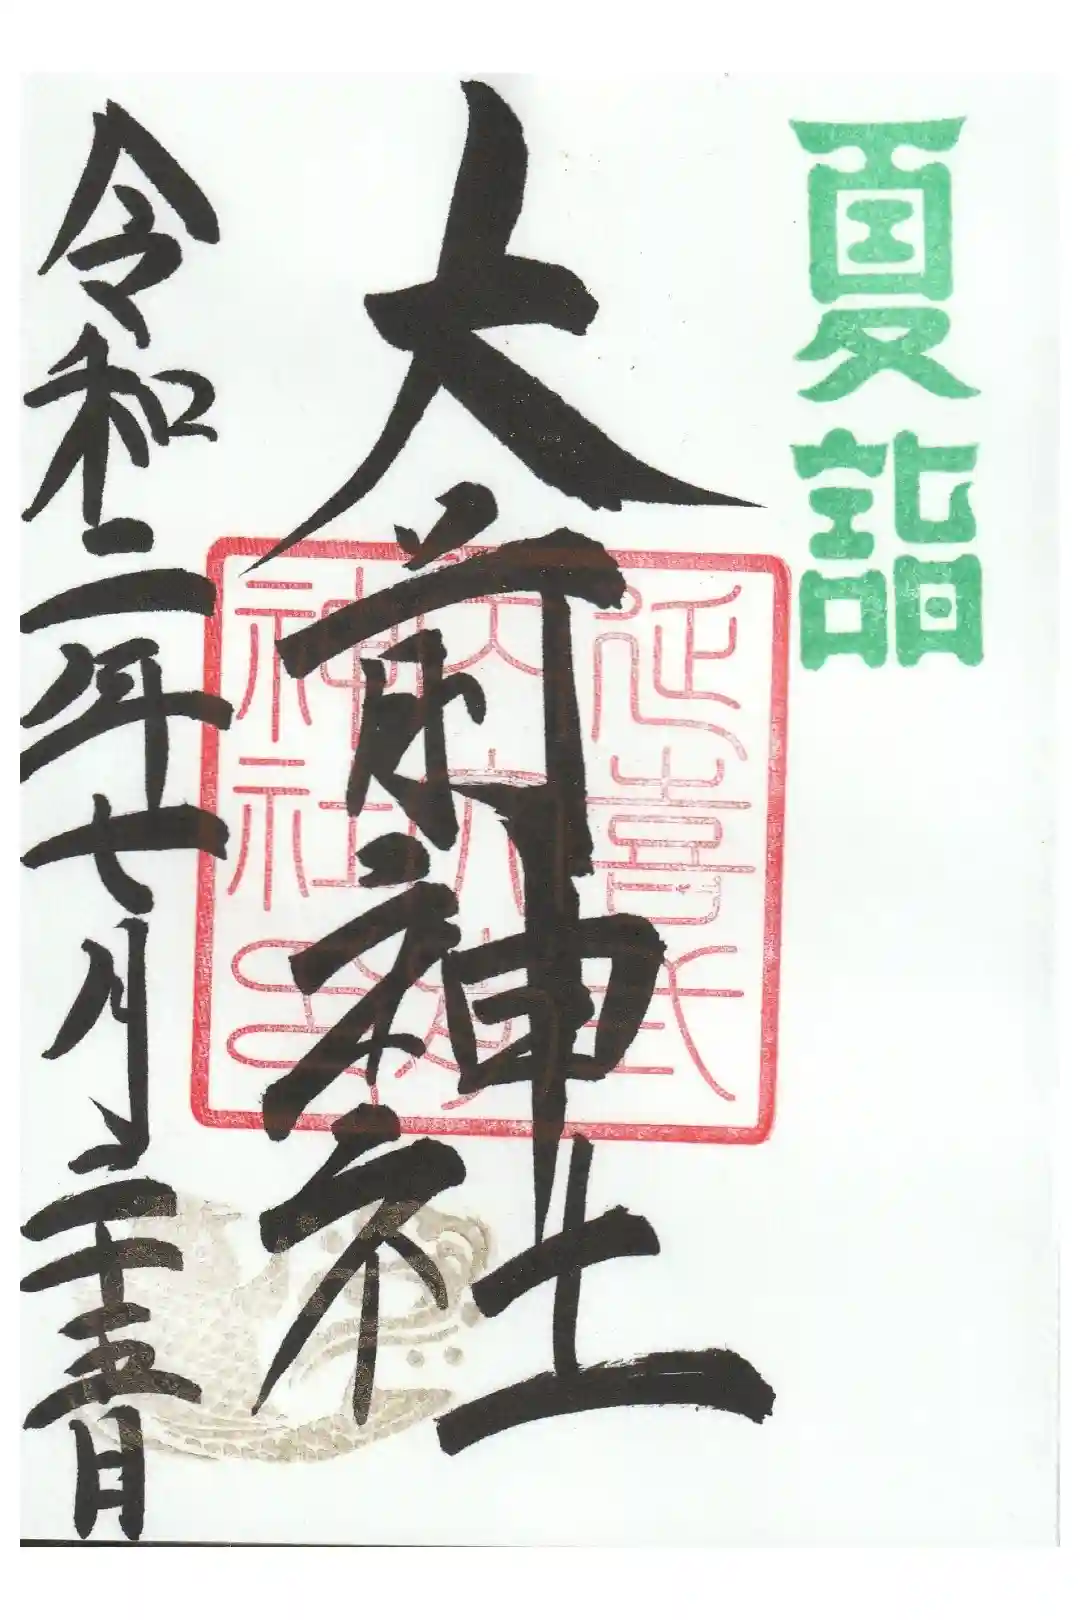 夏詣
延喜式
内大前
神社印
大前神社
令和二年七月二十五日